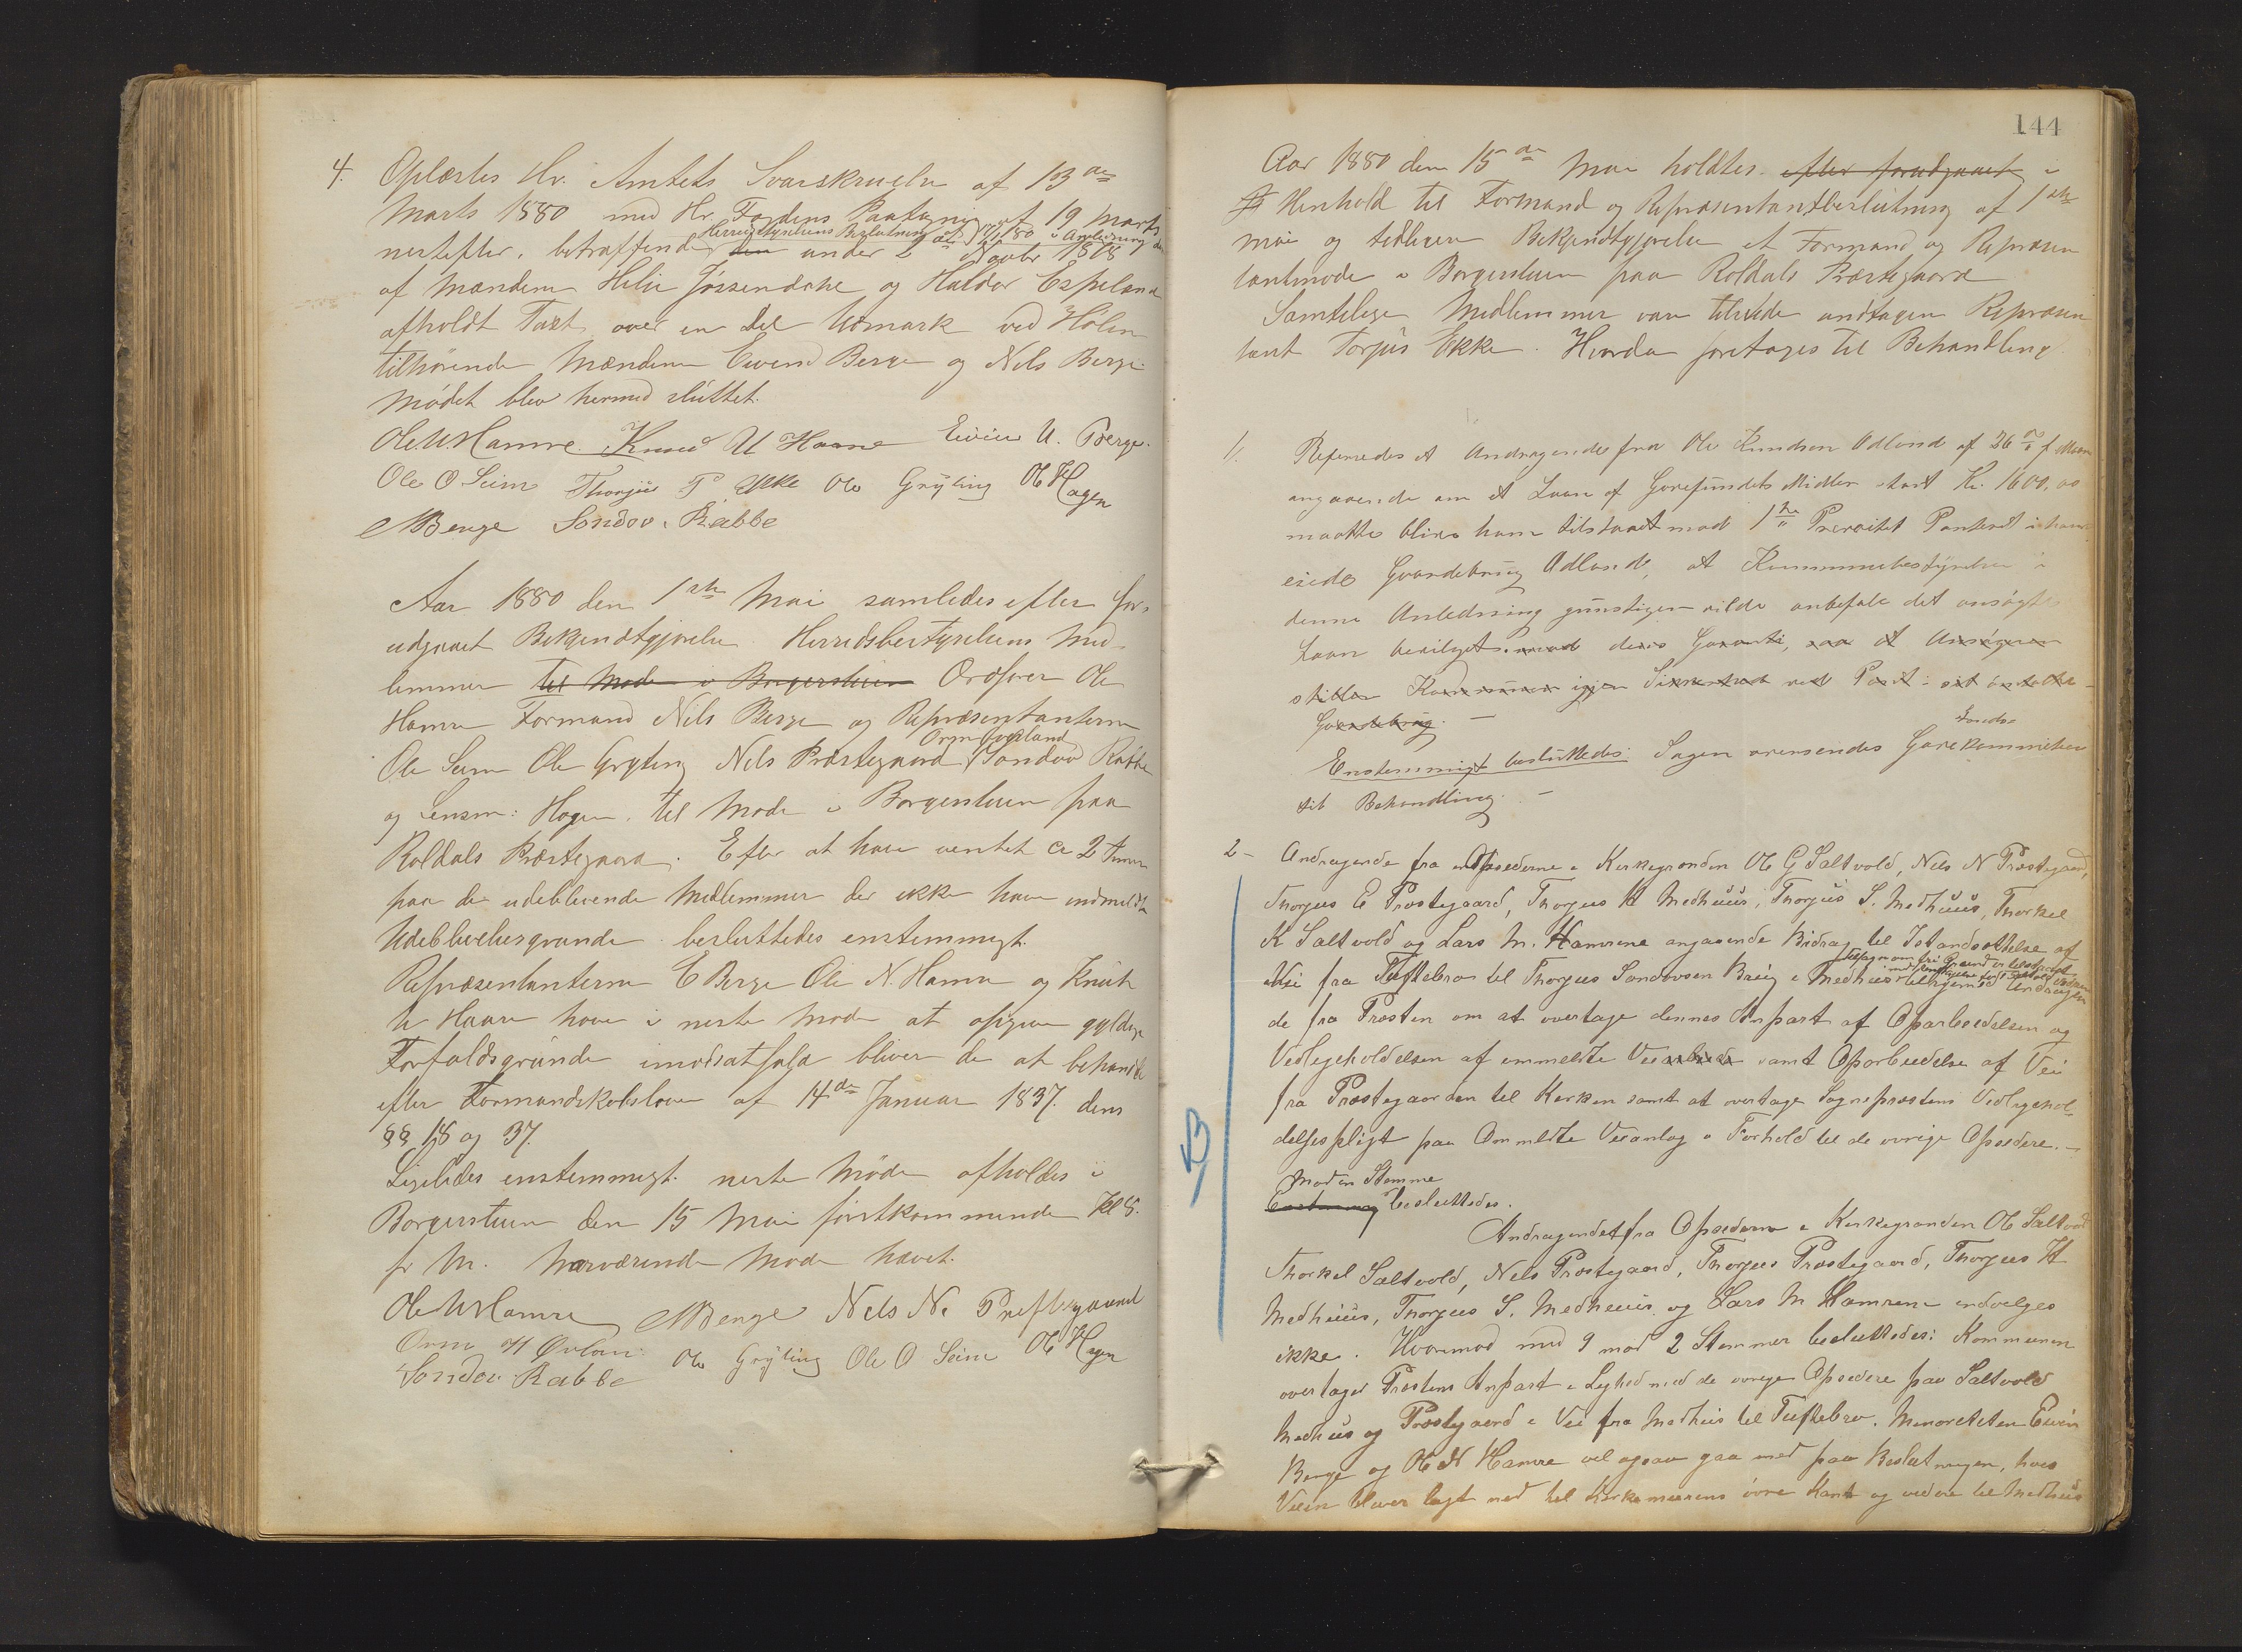 4. Oplæstes Hr. Amtets Svarskrivelse af 13de
Marts 1880 med Hr. Fogdens Paategning af 19 Marts
Herredstyrelsens Beslutning af 17/1 80 i Anledning den
nestefter, betræffende den under 2den Octobr 1878
af Mændene Helje Jøssendahl og Haldor Espeland
afholdt Taxt over en Del Udmark ved Hølen
tilhørende Mændene Eivend Berge og Nels Berge.
Mødet blev hermed sluttet.
Ole N Hamre Knud U Haare Eivin U. Berge.
Ole O Seim Thorjus P. Ekke Ole Gryting Ol Hagen
NBerge Sondov. Rabbe
Aar 1880 den 1ste Mai samledes efter for-
udgaaet Bekjendtgjørelse Herredsbestyrelsens Med-
lemmer til Møde i Borgerstuen Ordfører Ole
Hamre Formand Nils Berge og Repræsentanterne
Orm Øverland
Ole Seim Ole Gryting Nels Præstegaard Sondov Rabbe
og Lensm: Hagen til Møde i Borgerstuen paa
Røldals Præstegaard. Efter at have ventet ca 2 Timer
paa de udeblivende Medlemmer der ikke have indmeldt
Udeblivelsesgrunde besluttedes enstemmigt.
Repræsentanterne E Berge Ole N. Hamre og Knut
U Haare have i neste Møde at opgive gyldige
Forfaldsgrunde imodsatfald bliver de at behandle
efter Formandskabsloven af 14de Januar 1837. dens
§§ 18 og 37.
Ligeledes enstemmigt. neste Møde afholdes i
Borgerstuen den 15 Mai førstkommende Kl 8.
fr M. Nærværende Møde hævet.
Ole N Hamre NBerge Nels N. Prestegaard
Orm H Øvland Ole Gryting Ole O Seim Ol Hagen
Sondov Rabbe
144
Aar 1880 den 15de Mai holdtes efter forudgaaet i
Henhold til Formand og Repræsentantbeslutning af 1ste
Mai og tidligere Bekjendtgjørelse et Formand og Repræsen
tantmøde i Borgerstuen paa Røldals Præstegaard
Samtlige Medlemmer vare tilstede undtagen Repræsen
tant Torjus Ekke. Hvorda foretoges til Behandling
1/. Refereredes et Andragende fra Ole Knudsen Adland af 26de f. Maan
angaaende om et Laan af Gavefundets Midler stort Kr. 1600,00
maatte blive ham tilstaaet mod 1ste Prioritet Panteret i hans
eiede Gaardebrug Adland, at Kommunebestyrelsen i
denne Anledning gunstigen vilde anbefale det ansøgte
Laan bevilget. mod deres Garanti, saa at Ansøgeren
stiller Kommunen igjen Sikkerhed ved Pant i sit omtalte
Gaardebrug. —
fonds-
Enstemmigt besluttedes: Sagen oversendes Gavekommiteen
til Behandling. —
2 - Andragende fra Opsederne i Kirkegrenden Ole G Saltvold, Nels N Prestegaard,
Thorjus E Prestegaard, Thorjus H Medhuus, Thorjus S. Medhuus, Thorkel
K Saltvold og Lars M. Hamrene angaaende Bidrag til Istandsættelse af
Vei fra Tuftebro til Thorjus Sondovsen Brug i Medhuus tilligemed Andragen
de fra Presten om at overtage dennes Anpart af Oparbeidelsen og
Vedligeholdelsen af ommeldte Veiarbeide samt Oparbeidelse af Vei
fra Prestegaarden til Kirken samt at overtage Sogneprestens Vedligehol-
delsespligt paa Ommeldte Veianlæg i Forhold til de øvrige Opsedere. -
Mod en Stemme
Enstemmig besluttedes.
Andragendet fra Opsederne i Kirkegrenden Ole Saltvold
Thorkel Saltvold, Nels Prestegaard, Thorjus Prestegaard, Thorjus H
Medhuus, Thorjus S. Medhuus og Lars M Hamrene indvilges
ikke. Hvorimod med 9 mod 2 Stemmer besluttedes: Kommunen
overtager Prestens Anpart i Lighed med de øvrige Opsedere paa Saltvold
Medhuus og Prestegaard i Vei fra Medhuus til Tuftebro. Minoriteten Eivin
Berge og Ole N Hamre vil ogsaa gaa med paa Beslutningen, hvis
Veien bliver lagt ned til Kirkemurens øvre Kant og videre til Medhuus